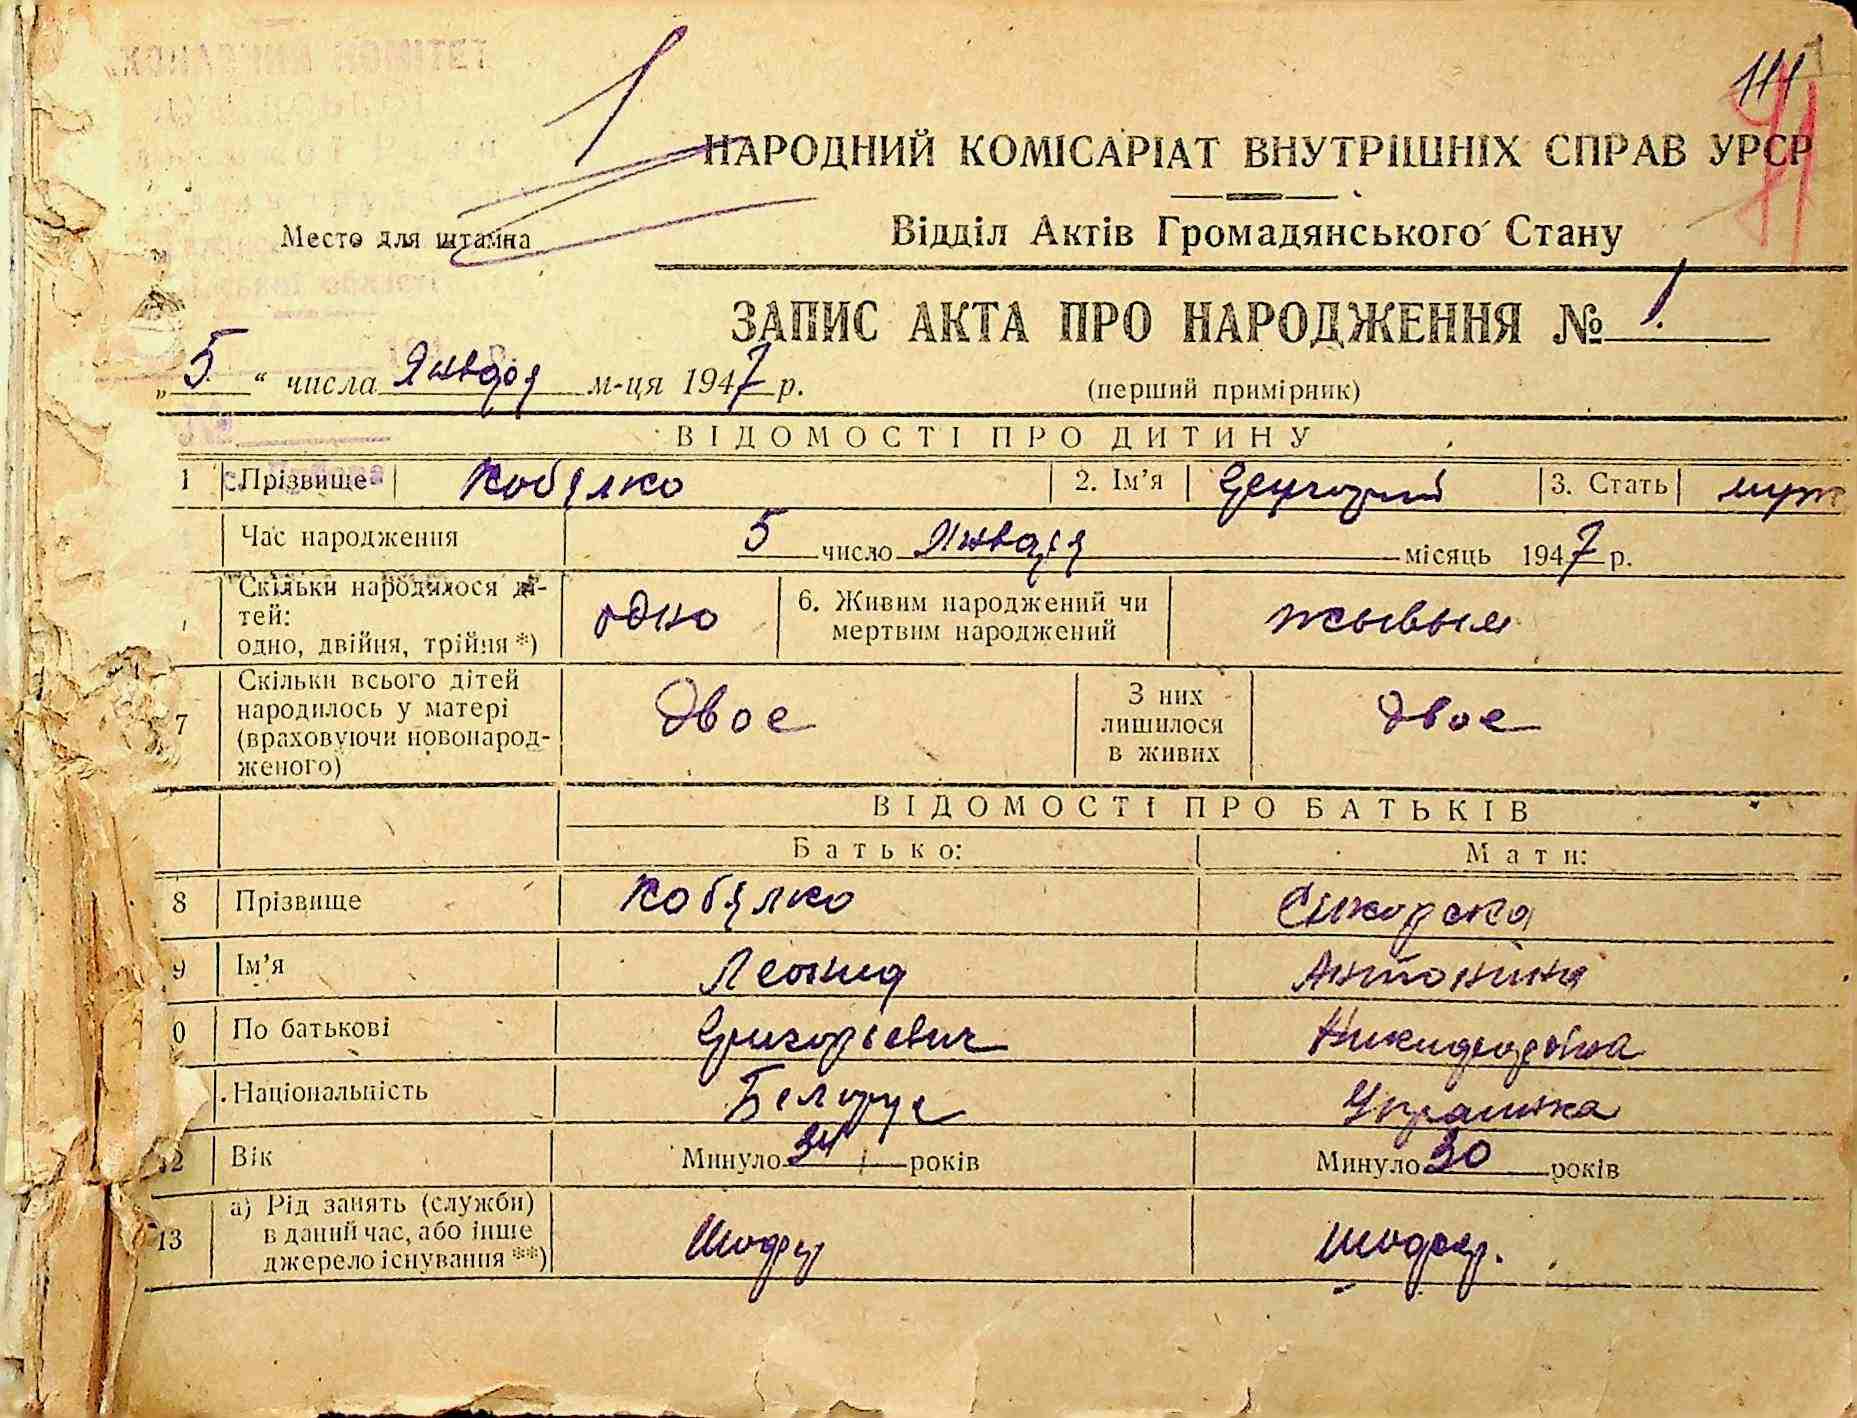 111
1
НАРОДНИЙ КОМІСАРІАТ ВНУТРІШНІХ СПРАВ УРСР
Место для штампа
Відділ Актів Громадянського Стану
ЗАПИС АКТА ПРО НАРОДЖЕННЯ № 1
„5“ числа Января м-ця 1947 р. (перший примірник)
ВІДОМОСТІ ПРО ДИТИНУ
1 Прізвище Кобялко 2. Ім’я Григорий 3. Стать муж
Час народження 5 число Января місяць 1947 р.
Скільки народилося ді-
тей:
одно, двійня, трійня *) одно 6. Живим народжений чи
мертвим народжений жывым
7 Скільки всього дітей
народилось у матері
(враховуючи новонарод-
женого) двое З них
лишилося
в живих двое
ВІДОМОСТІ ПРО БАТЬКІВ
Батько: Мати:
8 Прізвище Кобялко Сикорска
9 Ім’я Леонид Антонина
0 По батькові Григорьевич
Національність Белорус Украинка
12 Вік Минуло 34 років Минуло 30 років
13 а) Рід занять (служби)
в даний час, або інше
джерело існування **) Шофер шофер.